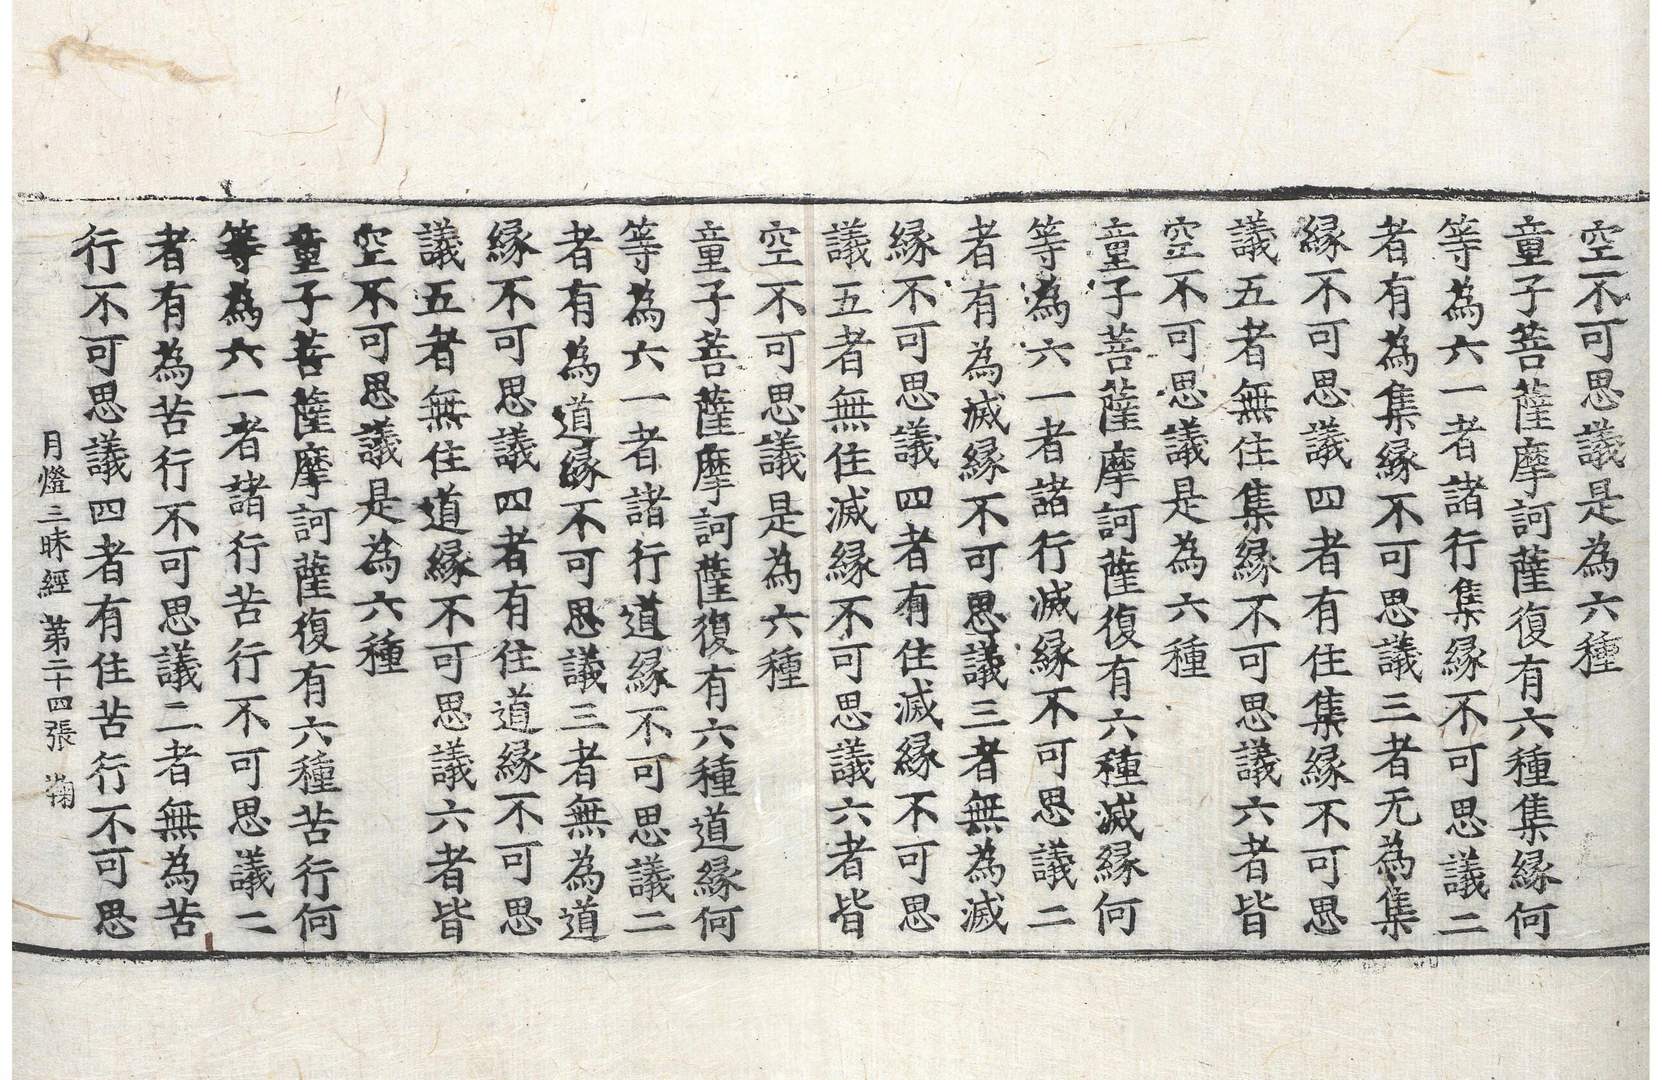 空不可思議是為六種
童子菩薩摩訶薩復有六種集縁何
等為六一者諸行集縁不可思議二
者有為集縁不可思議三者无為集
縁不可思議四者有住集縁不可思
議五者無住集縁不可思議六者皆
空不可思議是為六種
童子菩薩摩訶薩復有六種滅縁何
等為六一者諸行滅縁不可思議二
者有為滅縁不可思議三者無為滅
縁不可思議四者有住滅縁不可思
議五者無住滅縁不可思議六者皆
空不可思議是為六種
童子菩薩摩訶薩復有六種道縁何
等為六一者諸行道縁不可思議二
者有為道縁不可思議三者無為道
縁不可思議四者有住道縁不可思
議五者無住道縁不可思議六者皆
空不可思議是為六種
童子菩薩摩訶薩復有六種苦行何
等為六一者諸行苦行不可思議二
者有為苦行不可思議二者無為苦
行不可思議四者有住苦行不可思
月燈三昧經 第二十四張 鞠